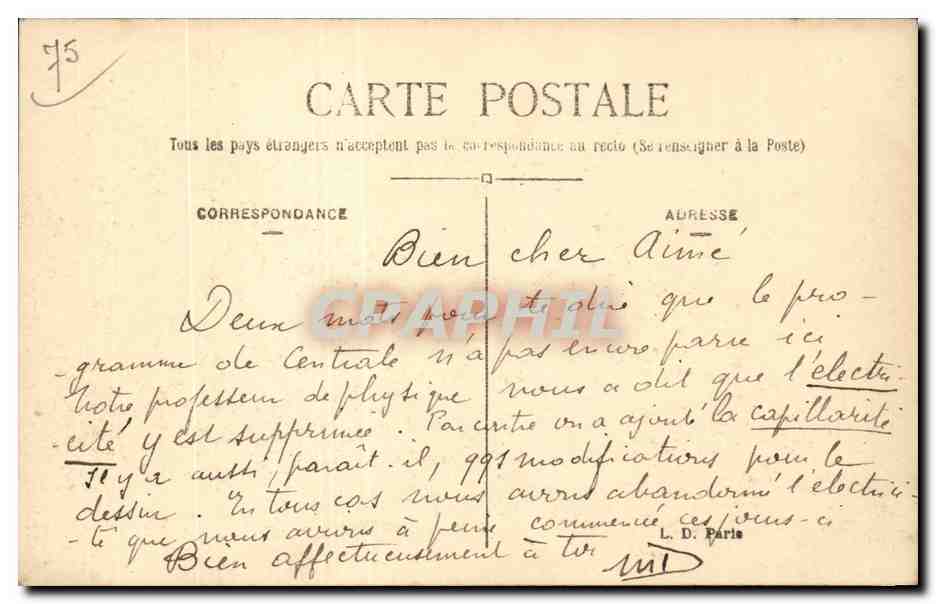 75
CARTE POSTALE
Tous les pays étrangers n'acceptent pas la correspondance au recto (Se renseigner à la Poste)
CORRESPONDANCE
ADRESSE
Bien cher Aimé
Deux mots pour te dire que le pro-
-gramme de Centrale n'a pas encore paru ici
Notre professeur de physique nous a dit que l'électri-
-cité y est supprimée. Par contre on a ajouté la capillarité
Il y a aussi, paraît-il, qqs modifications pour le
dessin. En tous cas nous avons abandonné l'électrici-
-té que nous avions à peine commencée ces jours-ci
L. D. Paris
Bien affectueusement à toi
MD
CPAPHIL